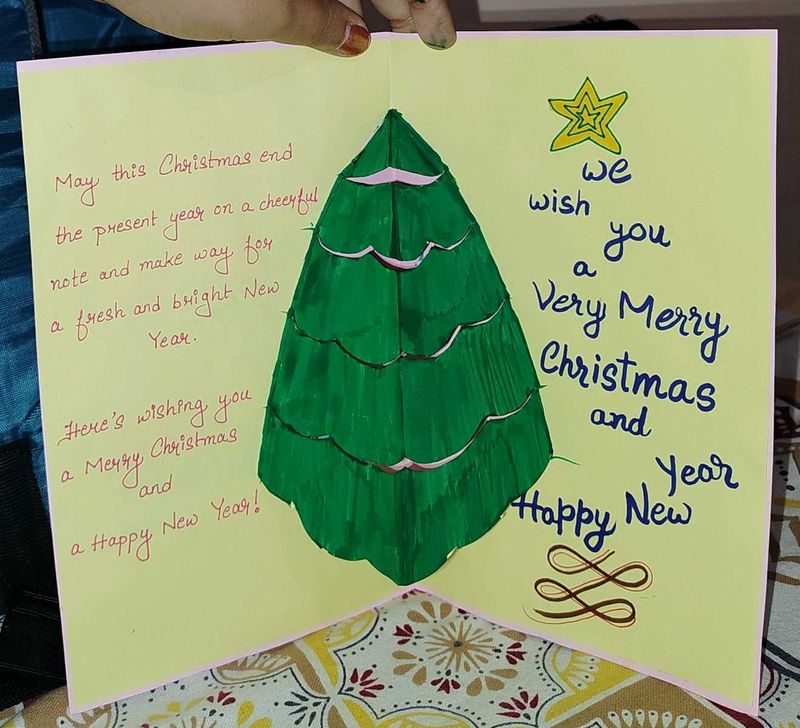 May this Christmas end
the present year on a cheerful
note and make way for
a fresh and bright New
Year.
Here's wishing you
a Merry Christmas
and
a Happy New Year!
we
wish you
a
Very Merry
Christmas
and
Year
Happy New